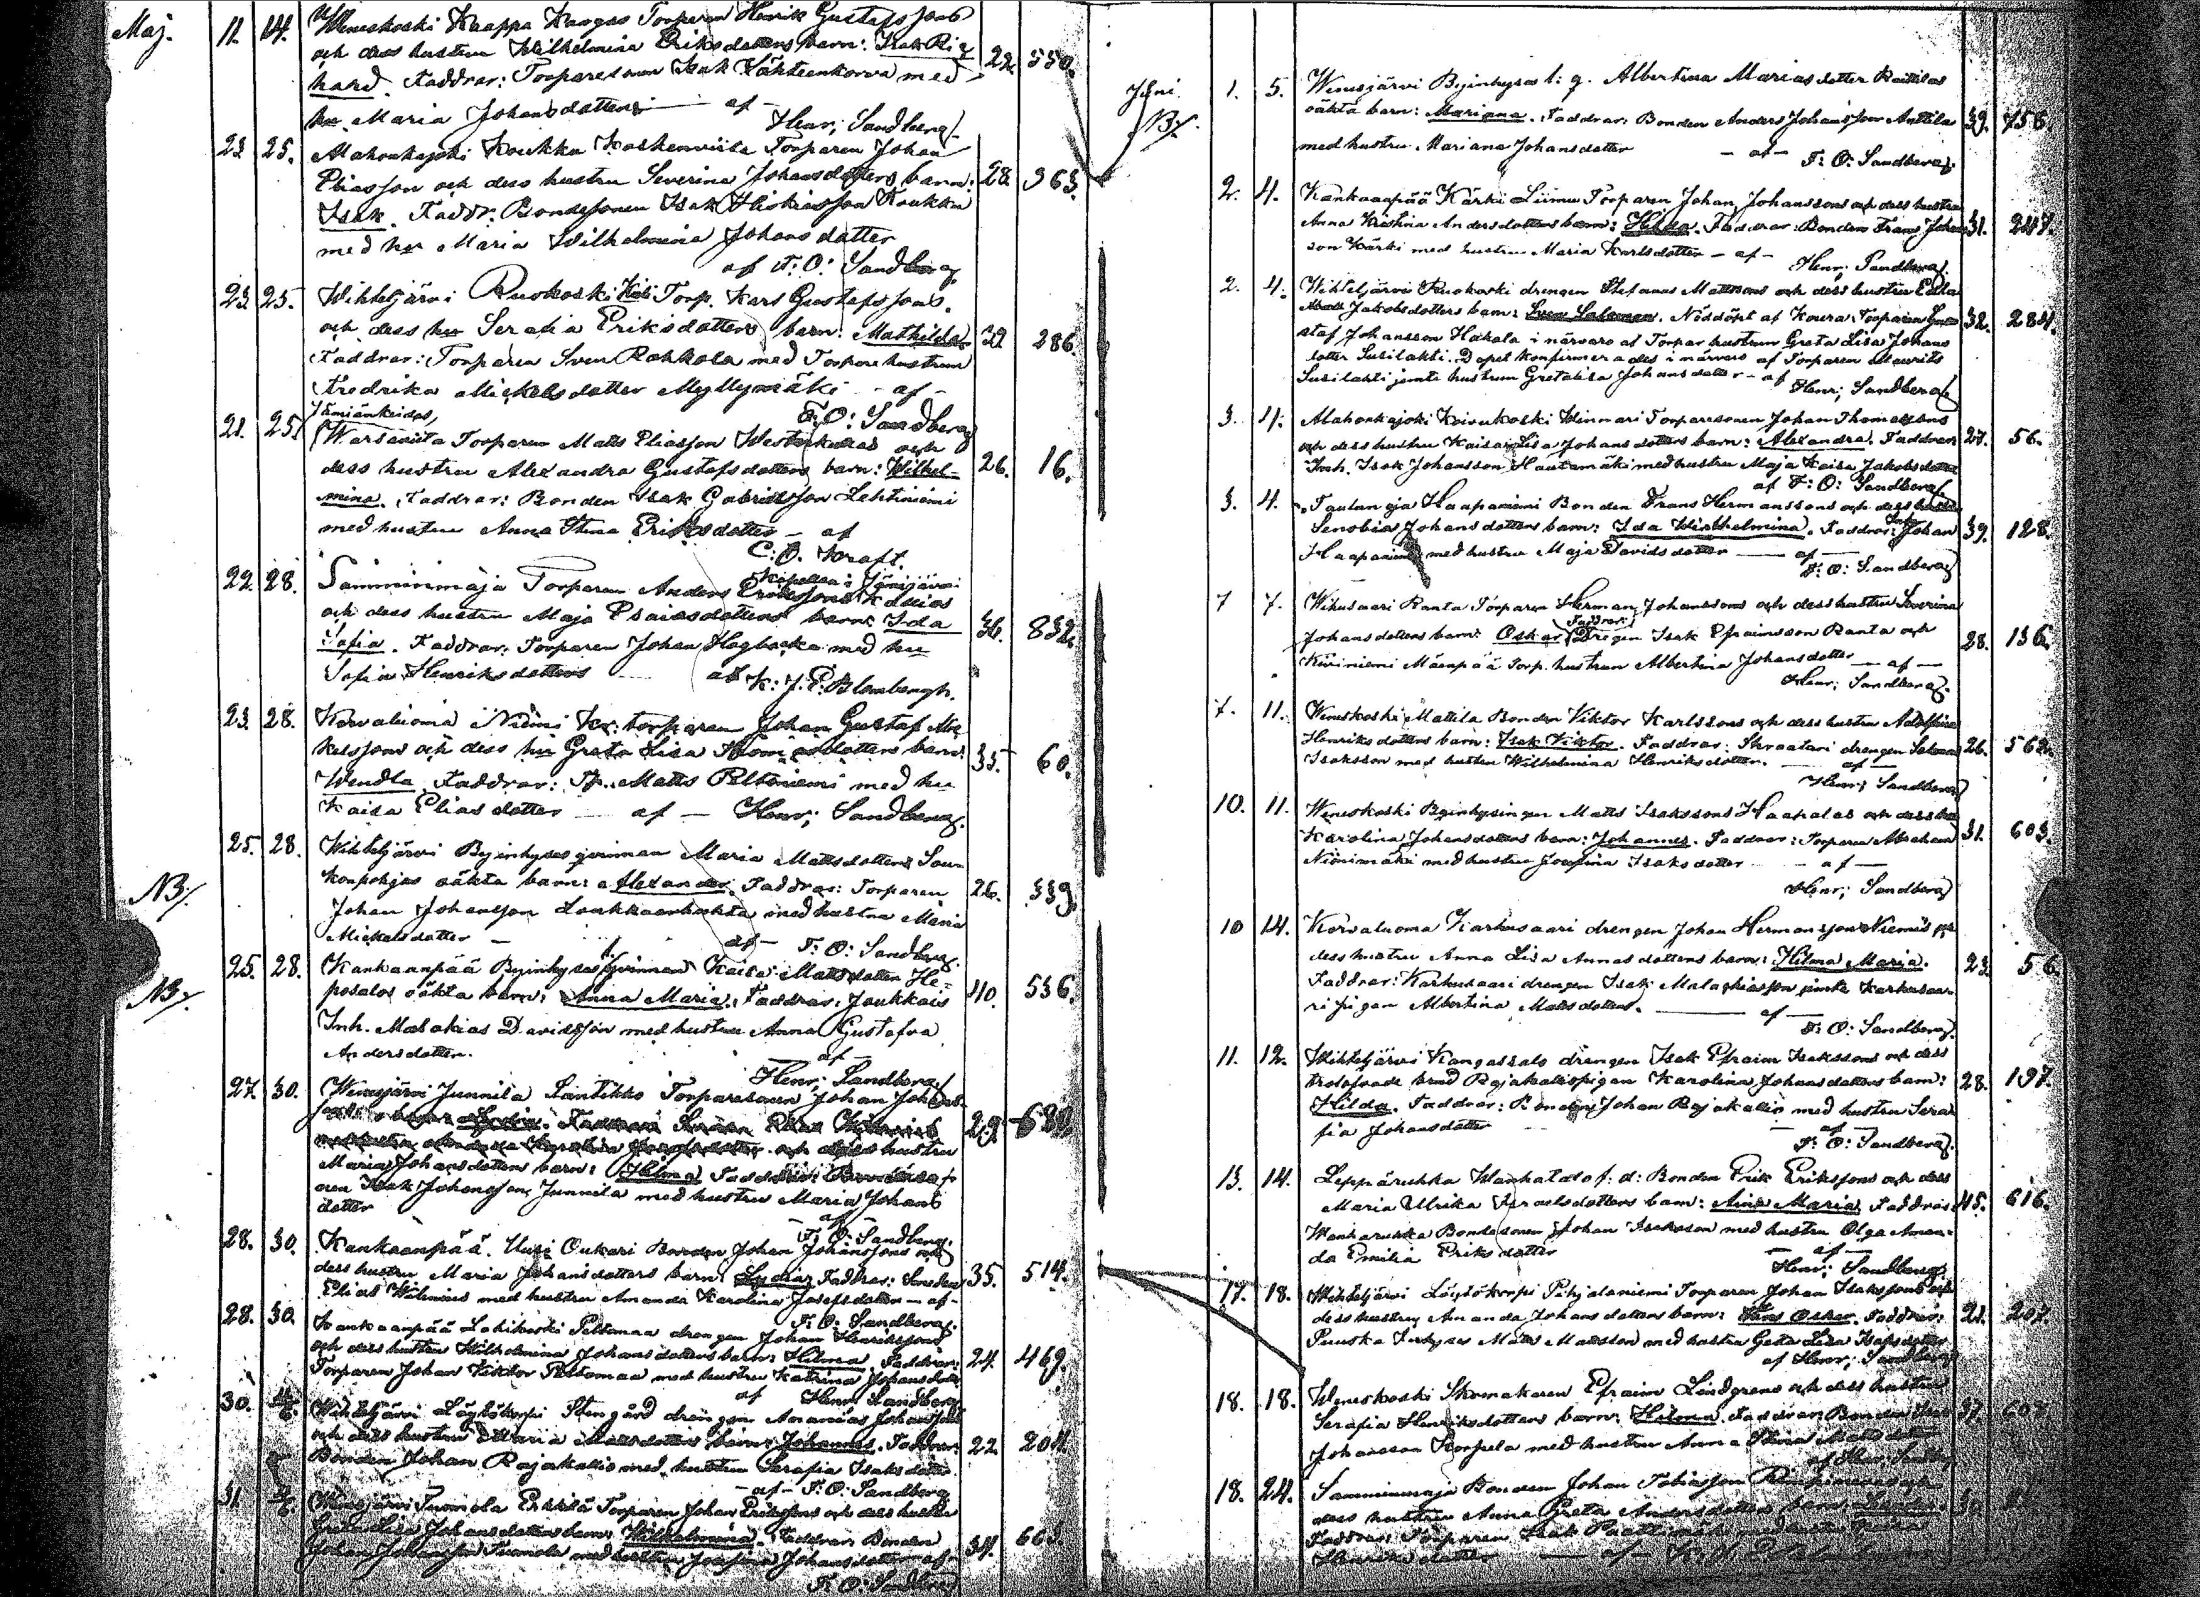 Maj. 11. 14. Weneskoski Kaappa Kangas Torparen Henrik Gustafssons
och dess hustru Wilhelmina Eriksdotters barn: Isak Ri- 22. 550.
hard. Faddrar: Torparesonen Isak Lähteenkorva med
hu Maria Johansdotter — af —
Henr; Sandberg.
23. 25. Alahonkajoki Koukku Koskenniska Torparen Johan
Eliasson och dess hustru Severina Johansdotters barn: 28. 363.
Isak. Faddr. Bondesonen Isak Koukku
med hu Maria Wilhelmina Johansdotter
af F: O: Sandberg.
23. 25. Wihteljärvi Ruokoski Torp. Karl Gustafssons
och dess hu Serafia Eriksdotters barn: Mathilda 22 286.
Faddrar: Torparen Sven Rahkola med Torpare hustrun
Fredrika Mickelsdotter Myllymäki — af —
F: O: Sandberg
Jämiänkeidas,
21. 25. Torparen Matts Eliasson och
dess hustru Alexandra Gustafsdotters barn: Wilhel- 26. 16.
mina. Faddrar: Bonden Isak Gabrielsson Lehtiniemi
med hustru Anna Stina Eriksdotter — af
C: O. Kraft.
Kapellan i Jämijärvi
22. 28. Samminmaja Torparen Anders Erikssons Kallios
och dess hustru Maja Esaiasdotters barn: Ida 36. 832.
Sofia. Faddrar: Torparen Johan Hagbacka med hu
Sofia Henriksdotter af K: J: E: Blombergh.
23. 28. Korvaluoma Niemi Kr: torparen Johan Gustaf Mic-
kelssons och dess hu Greta Lisa Thomasdotters barn: 35. 60.
Wendla. Faddrar: Tp. Matts Peltoniemi med hu
Kaisa Eliasdotter — af — Henr; Sandberg.
25. 28. Wihteljärvi Byinhyses qvinnan Maria Mattsdotters Sou-
NB/. konpohjas oäkta barn: Alexander. Faddrar: Torparen 26. 339.
Johan Johansson Loukkaanhuhta med hustru Maria
Mickelsdotter — af — F: O: Sandberg.
25. 28. Kankaanpää Byinhyses qvinnan Kaisa Mattsdotter He-
NB/. posalos oäkta barn: Anna Maria. Faddrar: Joukkais 40. 536.
Inh. Malakias Davidsson med hustru Anna Gustafva
Andersdotter. af —
Henr; Sandberg.
27. 30. Wenesjärvi Junnila Lintikko Torparesonen Johan
och dess hustru 29. 689.
Maria Johansdotters barn: Hilma. Faddrar:
Isak Johansson Junnila med hustru Maria Johans
dotter af —
F: O: Sandberg.
28. 30. Kankaanpää. Uusi Oukari Bonden Johan Johanssons och
dess hustru Maria Johansdotters barn: Lydia, Faddrar: Smeden 35. 514.
Elias Wilenius med hustru Amanda Karolina Josefsdotter — af —
F: O: Sandberg.
28. 30. Kankaanpää Lohikoski Peltomaa drengen Johan Henrikssons
och dess hustru Wilhelmina Johansdotters barn: Hilma. Faddrar: 24. 469.
Torparen Johan Viktor Peltomaa med hustru Katrina Johansdotter
af Henr; Sandberg.
30. 4/6. Wihteljärvi Löytökorpi Stengård drengen Ananias Johanssons
och dess hustru Maria Mattsdotters barn: Johannes. Faddrar: 22 204.
Bonden Johan Rajakallio med hustru Serafia Isaksdotter
— af — F: O: Sandberg
31. Wenesjärvi Tuomola Erkkilä Torparen Johan Erikssons och dess hustru
Greta Lisa Johansdotters barn: Wilhelmina. Faddrar: Bonden 34. 663.
Johan Johansson Tuomola med hustru Josefina Johansdotter — af —
F: O: Sandberg
Juni. 1. 5. Wenesjärvi Byinhyses l: q. Albertina Mariasdotter
NB/. oäkta barn: Mariana. Faddrar: Bonden Anders Johansson Anttila 39. 758.
med hustru Mariana Johansdotter — af — F: O: Sandberg.
2. 4. Kankaanpää Kärki Liimu Torparen Johan Johanssons och dess hustru
Anna Kristina Andersdotters barn: Hilda. Faddrar: Bonden Frans Johans 31. 247.
son Kärki med hustru Maria Karlsdotter — af —
Henr; Sandberg.
2. 4. Wihteljärvi Ruokoski drengen Stefanus Mattssons och dess hustru Edla
Jakobsdotters barn: Sven Salomon. Nöddöpt af Koura Torparen Gus- 32. 284.
staf Johansson Hakala i närvaro af Torpar hustrun Greta Lisa Johans
dotter Susilahti. Dopet konfirmerades i närvaro af Torparen Maurits
Susilahti jemte hustrun Gretalisa Johansdotter — af
Henr; Sandberg
3. 4. Alahonkajoki Koivukoski Winnari Torparesonen Johan Thomassons
och dess hustru Kaisa Lisa Johansdotters barn: Alexandra. Faddrar: 27. 56.
Inh. Isak Johansson Hautamäki med hustru Maja Kaisa Jakobsdotter
af F: O: Sandberg
3. 4. Haapaniemi Bonden Frans Hermanssons och dess hustru
Senobia Johansdotters barn: Ida Wilhelmina. Faddrar: Johan 39. 128.
Haapaniemi med hustru Maja Davidsdotter — af —
F: O: Sandberg
7 7. Wihusaari Ranta Torparen Herman Johanssons och dess hustru Severina
Faddrar:
Johansdotters barn: Oskar. Drengen Isak Efraimsson Ranta och 28. 136.
Kiviniemi Mäenpää Torp. hustrun Albertina Johansdotter — af —
Henr; Sandberg.
7. 11. Weneskoski Mattila Bonden Viktor Karlssons och dess hustru Adolfina
Henriksdotters barn: Isak Viktor. Faddrar: Skraatari drengen 26. 562.
Isaksson med hustru Wilhelmina Henriksdotter. — af —
Henr; Sandberg
10. 11. Weneskoski Byinhysingen Matts Isakssons Haapalas och dess hu
Karolina Johansdotters barn: Johannes. Faddrar: Torparen Abraham 31. 603.
Niinimäki med hustru Josefina Isaksdotter — af —
Henr; Sandberg
10 14. Korvaluoma Karhusaari drengen Johan Hermanssons Niemis och
dess hustru Anna Lisa Annasdotters barn: Hilma Maria. 23. 56.
Faddrar: Karhusaari drengen Isak Malachiasson jemte Karhusaa-
ri pigan Albertina Mattsdotter. — af —
F: O: Sandberg.
11. 12. Wihteljärvi Kangassalo drengen Isak Efraim Isakssons och dess
trolofvade brud Rajakalliopigan Karolina Johansdotters barn: 28. 197.
Hilda. Faddrar: Bonden Johan Rajakallio med hustru Sera
fia Johansdotter — af —
F: O: Sandberg.
13. 14. Leppäruhka Wanhatalo f. d: Bonden Erik Erikssons och dess
Maria Ulrika Israelsdotters barn: Aina Maria. Faddrar: 45. 616.
Wanharuhka Bondesonen Johan Isaksson med hustru Olga Aman-
da Emilia Eriksdotter — af —
Henr; Sandberg
17. 18. Wihteljärvi Löytökorpi Pihjalaniemi Torparen Johan Isakssons och
dess hustru Amanda Johansdotters barn: Frans Oskar. Faddrar: 21. 207.
Inhyses Matts Mattsson med hustru Greta Lisa
af Henr; Sandberg
18. 18. Weneskoski Skomakaren Efraim Lindgrens och dess hustru
Serafia Henriksdotters barn: Hilma. Faddrar: Bonden 37. 607.
Johansson Korpela med hustru Anna Stina Mattsdotter
af Henr; Sandberg
18. 24. Samminmaja Bonden Johan Tobiasson och
dess hustru Anna Greta Andersdotters barn:
Faddrar: Torparen Isak med hustru
Henriksdotter — af —